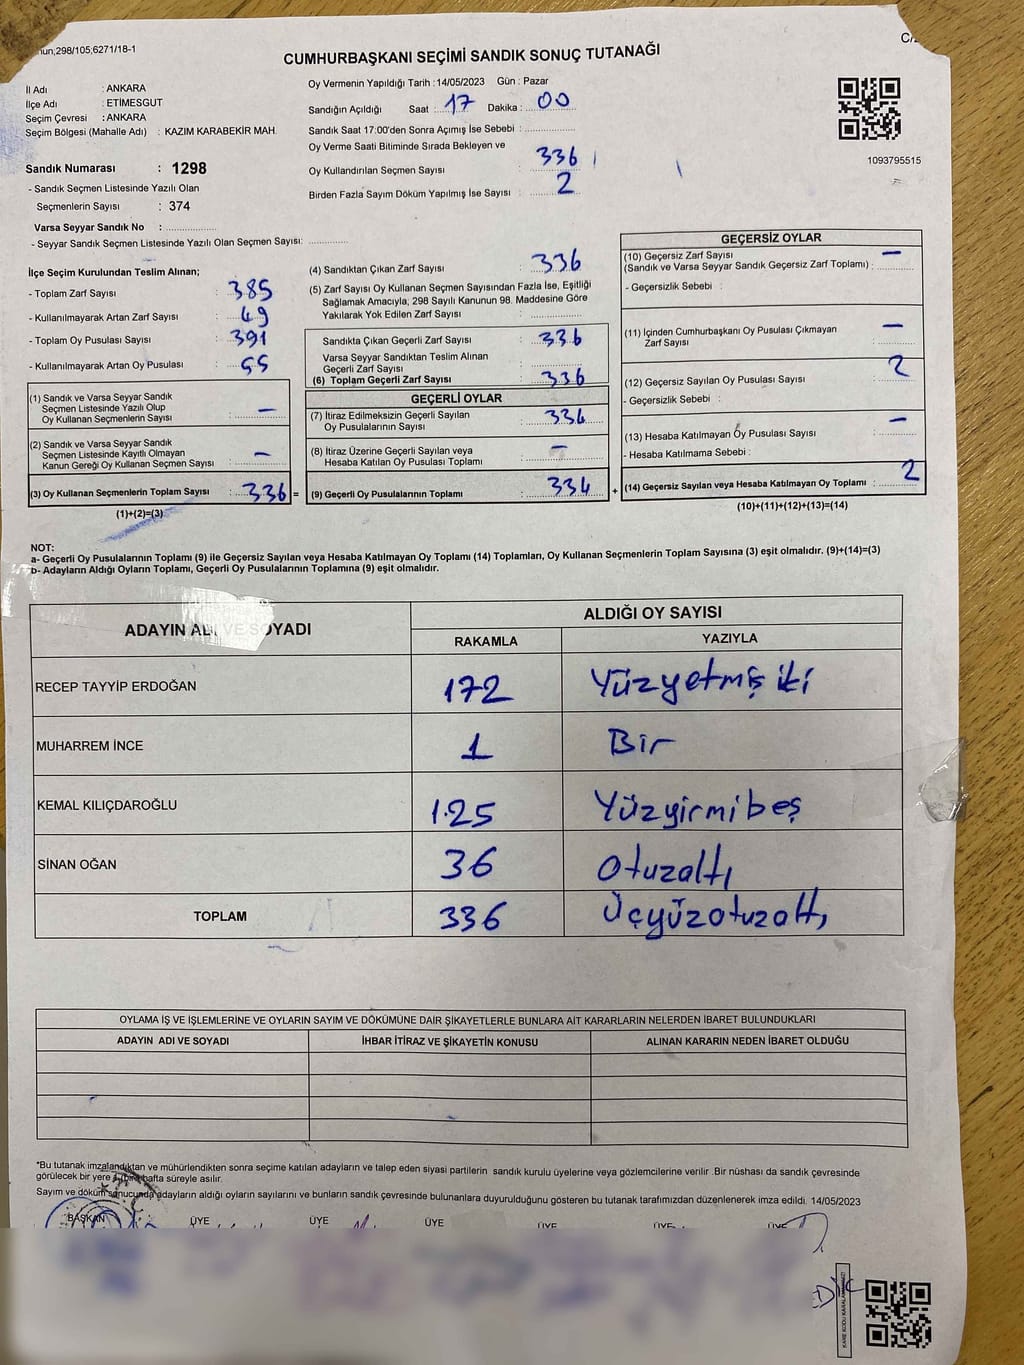 nun;298/105;6271/18-1
C/2
CUMHURBAŞKANI SEÇİMİ SANDIK SONUÇ TUTANAĞI
İl Adı : ANKARA
İlçe Adı : ETİMESGUT
Seçim Çevresi : ANKARA
Seçim Bölgesi (Mahalle Adı) : KAZIM KARABEKİR MAH.
Oy Vermenin Yapıldığı Tarih :14/05/2023 Gün : Pazar
Sandığın Açıldığı Saat : 17 Dakika : 00
Sandık Saat 17:00'den Sonra Açımış İse Sebebi :
Oy Verme Saati Bitiminde Sırada Bekleyen ve
Oy Kullandırılan Seçmen Sayısı : 336
Birden Fazla Sayım Döküm Yapılmış İse Sayısı : 2
1093795515
Sandık Numarası : 1298
- Sandık Seçmen Listesinde Yazılı Olan
Seçmenlerin Sayısı : 374
Varsa Seyyar Sandık No :
- Seyyar Sandık Seçmen Listesinde Yazılı Olan Seçmen Sayısı:
İlçe Seçim Kurulundan Teslim Alınan;
- Toplam Zarf Sayısı : 385
- Kullanılmayarak Artan Zarf Sayısı : 49
- Toplam Oy Pusulası Sayısı : 391
- Kullanılmayarak Artan Oy Pusulası : 55
(1) Sandık ve Varsa Seyyar Sandık
Seçmen Listesinde Yazılı Olup
Oy Kullanan Seçmenlerin Sayısı : —
(2) Sandık ve Varsa Seyyar Sandık
Seçmen Listesinde Kayıtlı Olmayan
Kanun Gereği Oy Kullanan Seçmen Sayısı : —
(3) Oy Kullanan Seçmenlerin Toplam Sayısı : 336 =
(1)+(2)=(3)
(4) Sandıktan Çıkan Zarf Sayısı : 336
(5) Zarf Sayısı Oy Kullanan Seçmen Sayısından Fazla İse, Eşitliği
Sağlamak Amacıyla, 298 Sayılı Kanunun 98. Maddesine Göre
Yakılarak Yok Edilen Zarf Sayısı :
Sandıkta Çıkan Geçerli Zarf Sayısı : 336
Varsa Seyyar Sandıktan Teslim Alınan
Geçerli Zarf Sayısı :
(6) Toplam Geçerli Zarf Sayısı : 336
GEÇERLİ OYLAR
(7) İtiraz Edilmeksizin Geçerli Sayılan
Oy Pusulalarının Sayısı : 334
(8) İtiraz Üzerine Geçerli Sayılan veya
Hesaba Katılan Oy Pusulası Toplamı : —
(9) Geçerli Oy Pusulalarının Toplamı : 334 +
GEÇERSİZ OYLAR
(10) Geçersiz Zarf Sayısı
(Sandık ve Varsa Seyyar Sandık Geçersiz Zarf Toplamı) : —
- Geçersizlik Sebebi :
(11) İçinden Cumhurbaşkanı Oy Pusulası Çıkmayan
Zarf Sayısı : —
(12) Geçersiz Sayılan Oy Pusulası Sayısı : 2
- Geçersizlik Sebebi :
(13) Hesaba Katılmayan Oy Pusulası Sayısı : —
- Hesaba Katılmama Sebebi :
(14) Geçersiz Sayılan veya Hesaba Katılmayan Oy Toplamı : 2
(10)+(11)+(12)+(13)=(14)
NOT:
a- Geçerli Oy Pusulalarının Toplamı (9) ile Geçersiz Sayılan veya Hesaba Katılmayan Oy Toplamı (14) Toplamları, Oy Kullanan Seçmenlerin Toplam Sayısına (3) eşit olmalıdır. (9)+(14)=(3)
b- Adayların Aldığı Oyların Toplamı, Geçerli Oy Pusulalarının Toplamına (9) eşit olmalıdır.
ADAYIN ADI VE SOYADI ALDIĞI OY SAYISI
RAKAMLA YAZIYLA
RECEP TAYYİP ERDOĞAN 172 Yüzyetmiş iki
MUHARREM İNCE 1 Bir
KEMAL KILIÇDAROĞLU 125 Yüzyirmibeş
SİNAN OĞAN 36 Otuzaltı
TOPLAM 336 Üçyüzotuzaltı
OYLAMA İŞ VE İŞLEMLERİNE VE OYLARIN SAYIM VE DÖKÜMÜNE DAİR ŞİKAYETLERLE BUNLARA AİT KARARLARIN NELERDEN İBARET BULUNDUKLARI
ADAYIN ADI VE SOYADI İHBAR İTİRAZ VE ŞİKAYETİN KONUSU ALINAN KARARIN NEDEN İBARET OLDUĞU
*Bu tutanak imzalandıktan ve mühürlendikten sonra seçime katılan adayların ve talep eden siyasi partilerin sandık kurulu üyelerine veya gözlemcilerine verilir .Bir nüshası da sandık çevresinde
görülecek bir yere bir hafta süreyle asılır.
Sayım ve döküm sonucunda adayların aldığı oyların sayılarını ve bunların sandık çevresinde bulunanlara duyurulduğunu gösteren bu tutanak tarafımızdan düzenlenerek imza edildi. 14/05/2023
BAŞKAN ÜYE ÜYE ÜYE ÜYE ÜYE ÜYE
KARE KODU KARALAMAYINIZ!